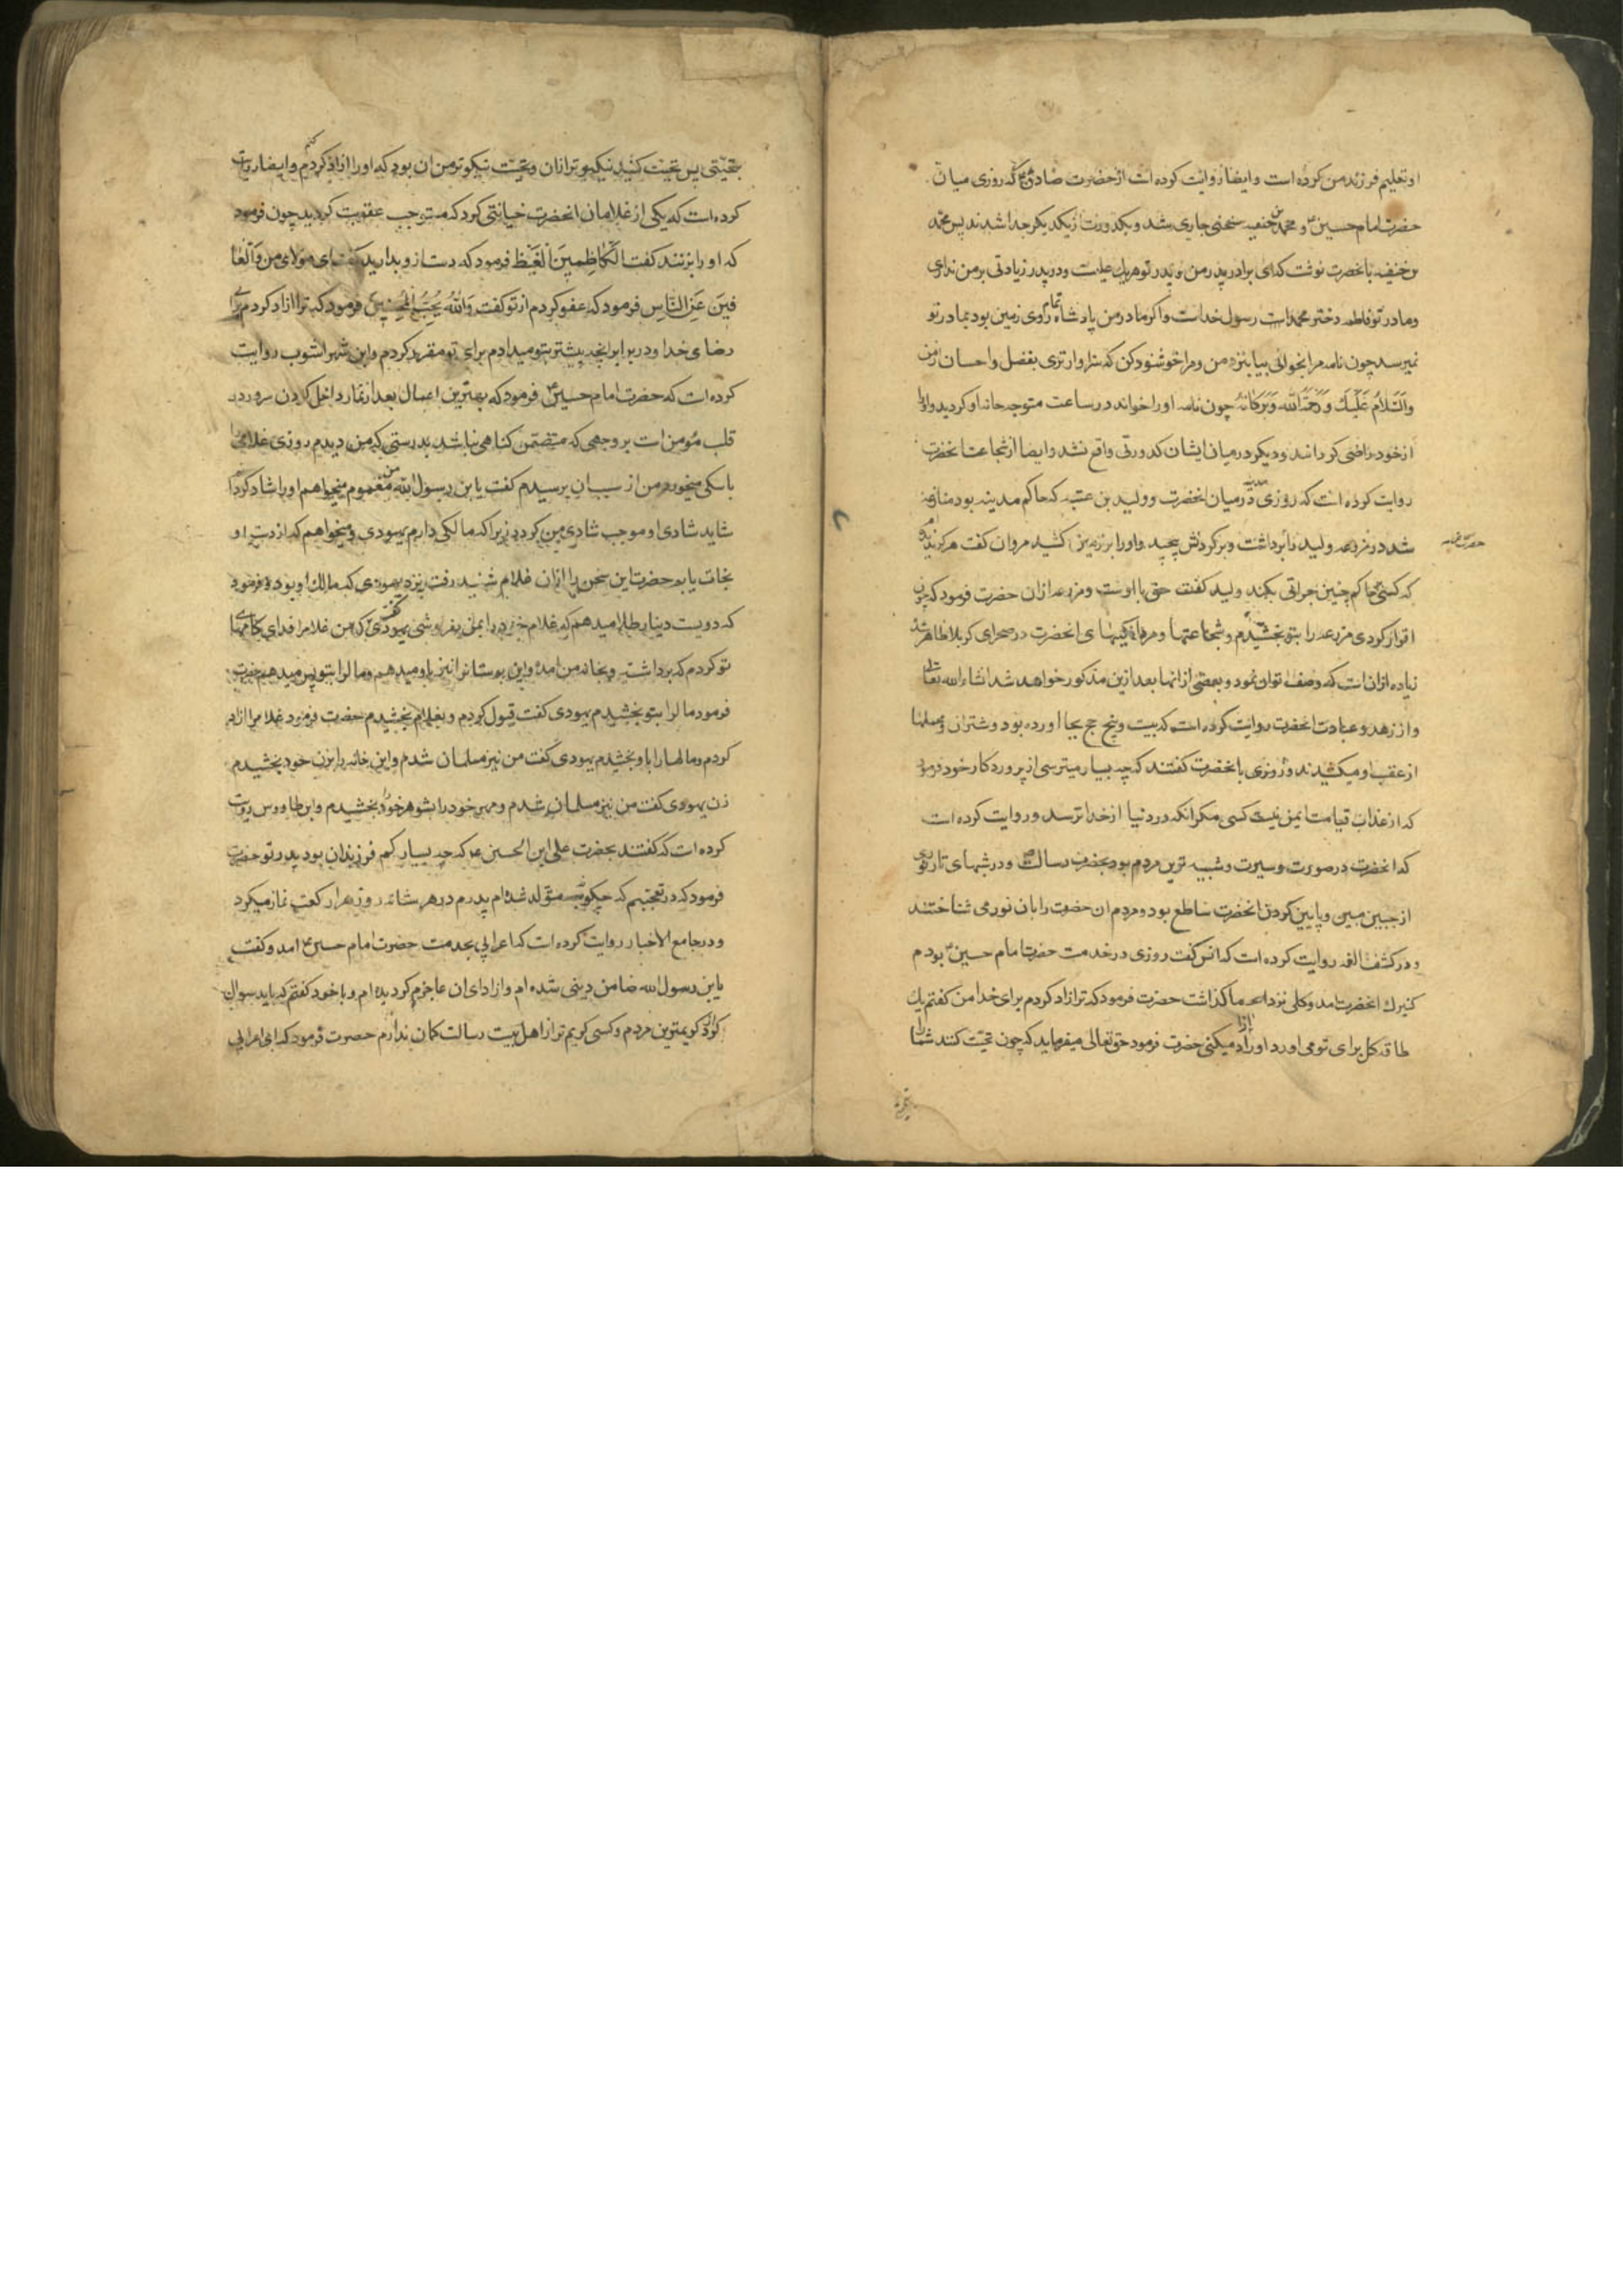 او تعلیم فرزند من کرده است و ایضا روایت کرده است از حضرت صادق ع که روزی میان
حضرت امام حسین ع و محمد بن حنفیه سخنی جاری شد و بکدورت از یکدیکر جدا شدند پس محمد
بن حنفیه بانحضرت نوشت که ای برادر پدر من و پدر تو هر یک علیست و در پدر زیادتی بر من نداری
و مادر تو فاطمه دختر محمد است رسول خداست و اکر مادر من پادشاه تمام روی زمین بود بمادر تو
نمیرسد چون نامه مرا بخوانی بیا بنزد من و مرا خوشنود کن که سزاوارتری بفضل و احسان از من
والسلام علیک و رحمة الله و برکاته چون نامه او را خواند در ساعت متوجه خانه او کردید و او را
از خود راضی کردانید و دیکر در میان ایشان کدورتی واقع نشد و ایضا از شجاعت انحضرت
روایت کرده است که روزی در میان انحضرت و ولید بن عتبه که حاکم مدینه بود منازعه
شد در مزرعه ولید را برداشت و بر کردنش پیچید و او را بر زمین کشید مروان کفت هرکز ندیده‌ام
که کسی بحاکم چنین جراتی بکند ولید کفت حق با اوست و مزرعه از ان حضرت فرمود که چون
اقرار کردی مزرعه را بتو بخشیدم و شجاعتها و مردانکیهای انحضرت در صحرای کربلا ظاهر شد
زیاده از ان است که وصف توان نمود و بعضی از انها بعد ازین مذکور خواهد شد انشاءالله تعالی
و از زهد و عبادت انحضرت روایت کرده است که بیست و پنج حج بجا اورده بود و شتران و محملها
از عقب او میکشیدند و روزی بانحضرت کفتند که چه بسیار میترسی از پروردکار خود فرمود
که از عذاب قیامت ایمن نیست کسی مکر انکه در دنیا از خدا ترسد و روایت کرده است
که انحضرت در صورت و سیرت و شبیه ترین مردم بود بحضرت رسالت ص و در شبهای تار نوری
از جبین مبین و پایین کردن انحضرت ساطع بود و مردم ان حضرت را بان نور می شناختند
و در کشف الغمه روایت کرده است که انس کفت روزی در خدمت حضرت امام حسین ع بودم
کنیزک انحضرت امد و کلی نزد ما کذاشت حضرت فرمود که ترا ازاد کردم برای خدا من کفتم یک
طاقه کل برای تو می اورد او را ازاد میکنی حضرت فرمود حق تعالی میفرماید که چون تحیت کنند شما را
بتحیتی پس تحیت کنید نیکوتر از ان و تحیت نیکوتر من ان بود که او را ازاد کردم کنم و ایضا روایت
کرده است که یکی از غلامان انحضرت خیانتی کرد که مستوجب عقوبت کردید چون فرمود
که او را بزنند کفت الکاظمین الغیظ فرمود که دست ازو بدارید کفت ای مولای من والعا
فین عن الناس فرمود که عفو کردم از تو کفت والله یحب المحسنین فرمود که ترا ازاد کردم برای
رضای خدا و در برابر انچه پیشتر بتو میدادم برای تو مقرر کردم و ابن شهراشوب روایت
کرده است که حضرت امام حسین ع فرمود که بهترین اعمال بعد از نماز داخل کردن سرور در
قلب مؤمن است بر وجهی که متضمن کناهی نباشد بدرستی که من دیدم روزی غلامی را
با سکی میخورد من از سبب ان پرسیدم کفت یابن رسول الله من مغموم میخواهم او را شاد کردا
شاید شادی او موجب شادی من کردد زیرا که مالکی دارم یهودی و میخواهم که از دست او
نجات یابم حضرت این سخن را از ان غلام شنید رفت نزد یهودی که مالک او بود و فرمود
که دویست دینار طلا میدهم که غلام خود را بمن بفروشی یهودی کفت که من غلام را فدای کامهای
تو کردم که برداشتی و بخانه من امدی و این بوستانرا نیز باو میدهم و مال را بتو پس میدهم حضرت
فرمود مال را بتو بخشیدم یهودی کفت قبول کردم و بغلام بخشیدم حضرت فرمود غلام را ازاد
کردم و مالها را باو بخشیدم یهودی کفت من نیز مسلمان شدم و این خانه را بزن خود بخشیدم
زن یهودی کفت من نیز مسلمان شدم و مهر خود را بشوهر خود بخشیدم و ابن طاووس روایت
کرده است که کفتند بحضرت علی ابن الحسین ع که چه بسیار کم فرزندان بود پدر تو حضرت
فرمود که در تعجبم که چکونه متولد شده‌ام پدرم در هر شبانه روز هزار رکعت نماز میکرد
و در جامع الاخبار روایت کرده است که اعرابی بخدمت حضرت امام حسین ع امد و کفت
یابن رسول الله ضامن دینی شده ام و از ادای ان عاجز کردیده ام و با خود کفتم که باید سوال
کرد از کریمترین مردم و کسی کریم تر از اهل بیت رسالت کمان ندارم حضرت فرمود که ای اعرابی